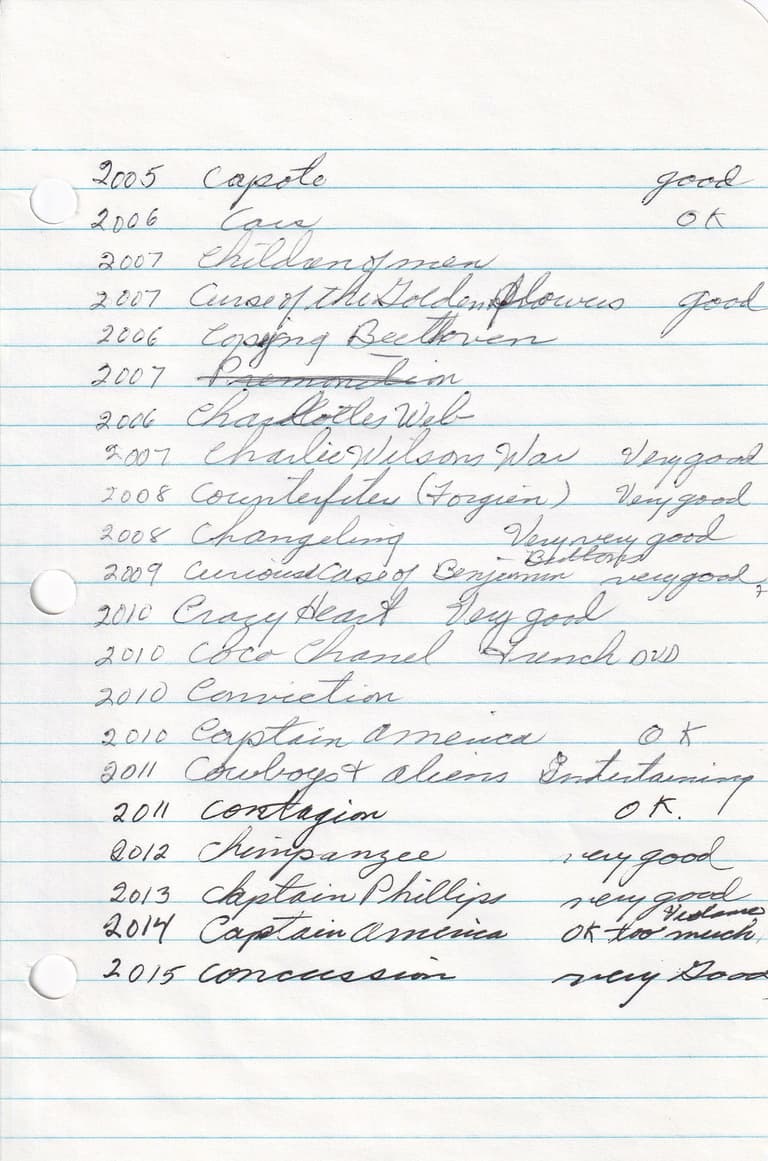 2005 Capote good
2006 Cars OK
2007 Children of men
2007 Curse of the Golden Flowers good
2006 Copying Beethoven
2007 Premonition
2006 Charlottes Web
2007 Charlie Wilsons War Very good
2008 Counterfiter (Forgien) Very good
2008 Changeling Very very good
2009 Curious Case of Benjamin Buttons very good
2010 Crazy Heart Very good
2010 Coco Chanel French DVD
2010 Conviction
2010 Captain America OK
2011 Cowboys & aliens Entertaining
2011 Contagion OK.
2012 Chimpanzee very good
2013 Captain Phillips very good
2014 Captain America OK too much Violence
2015 Concussion very Good